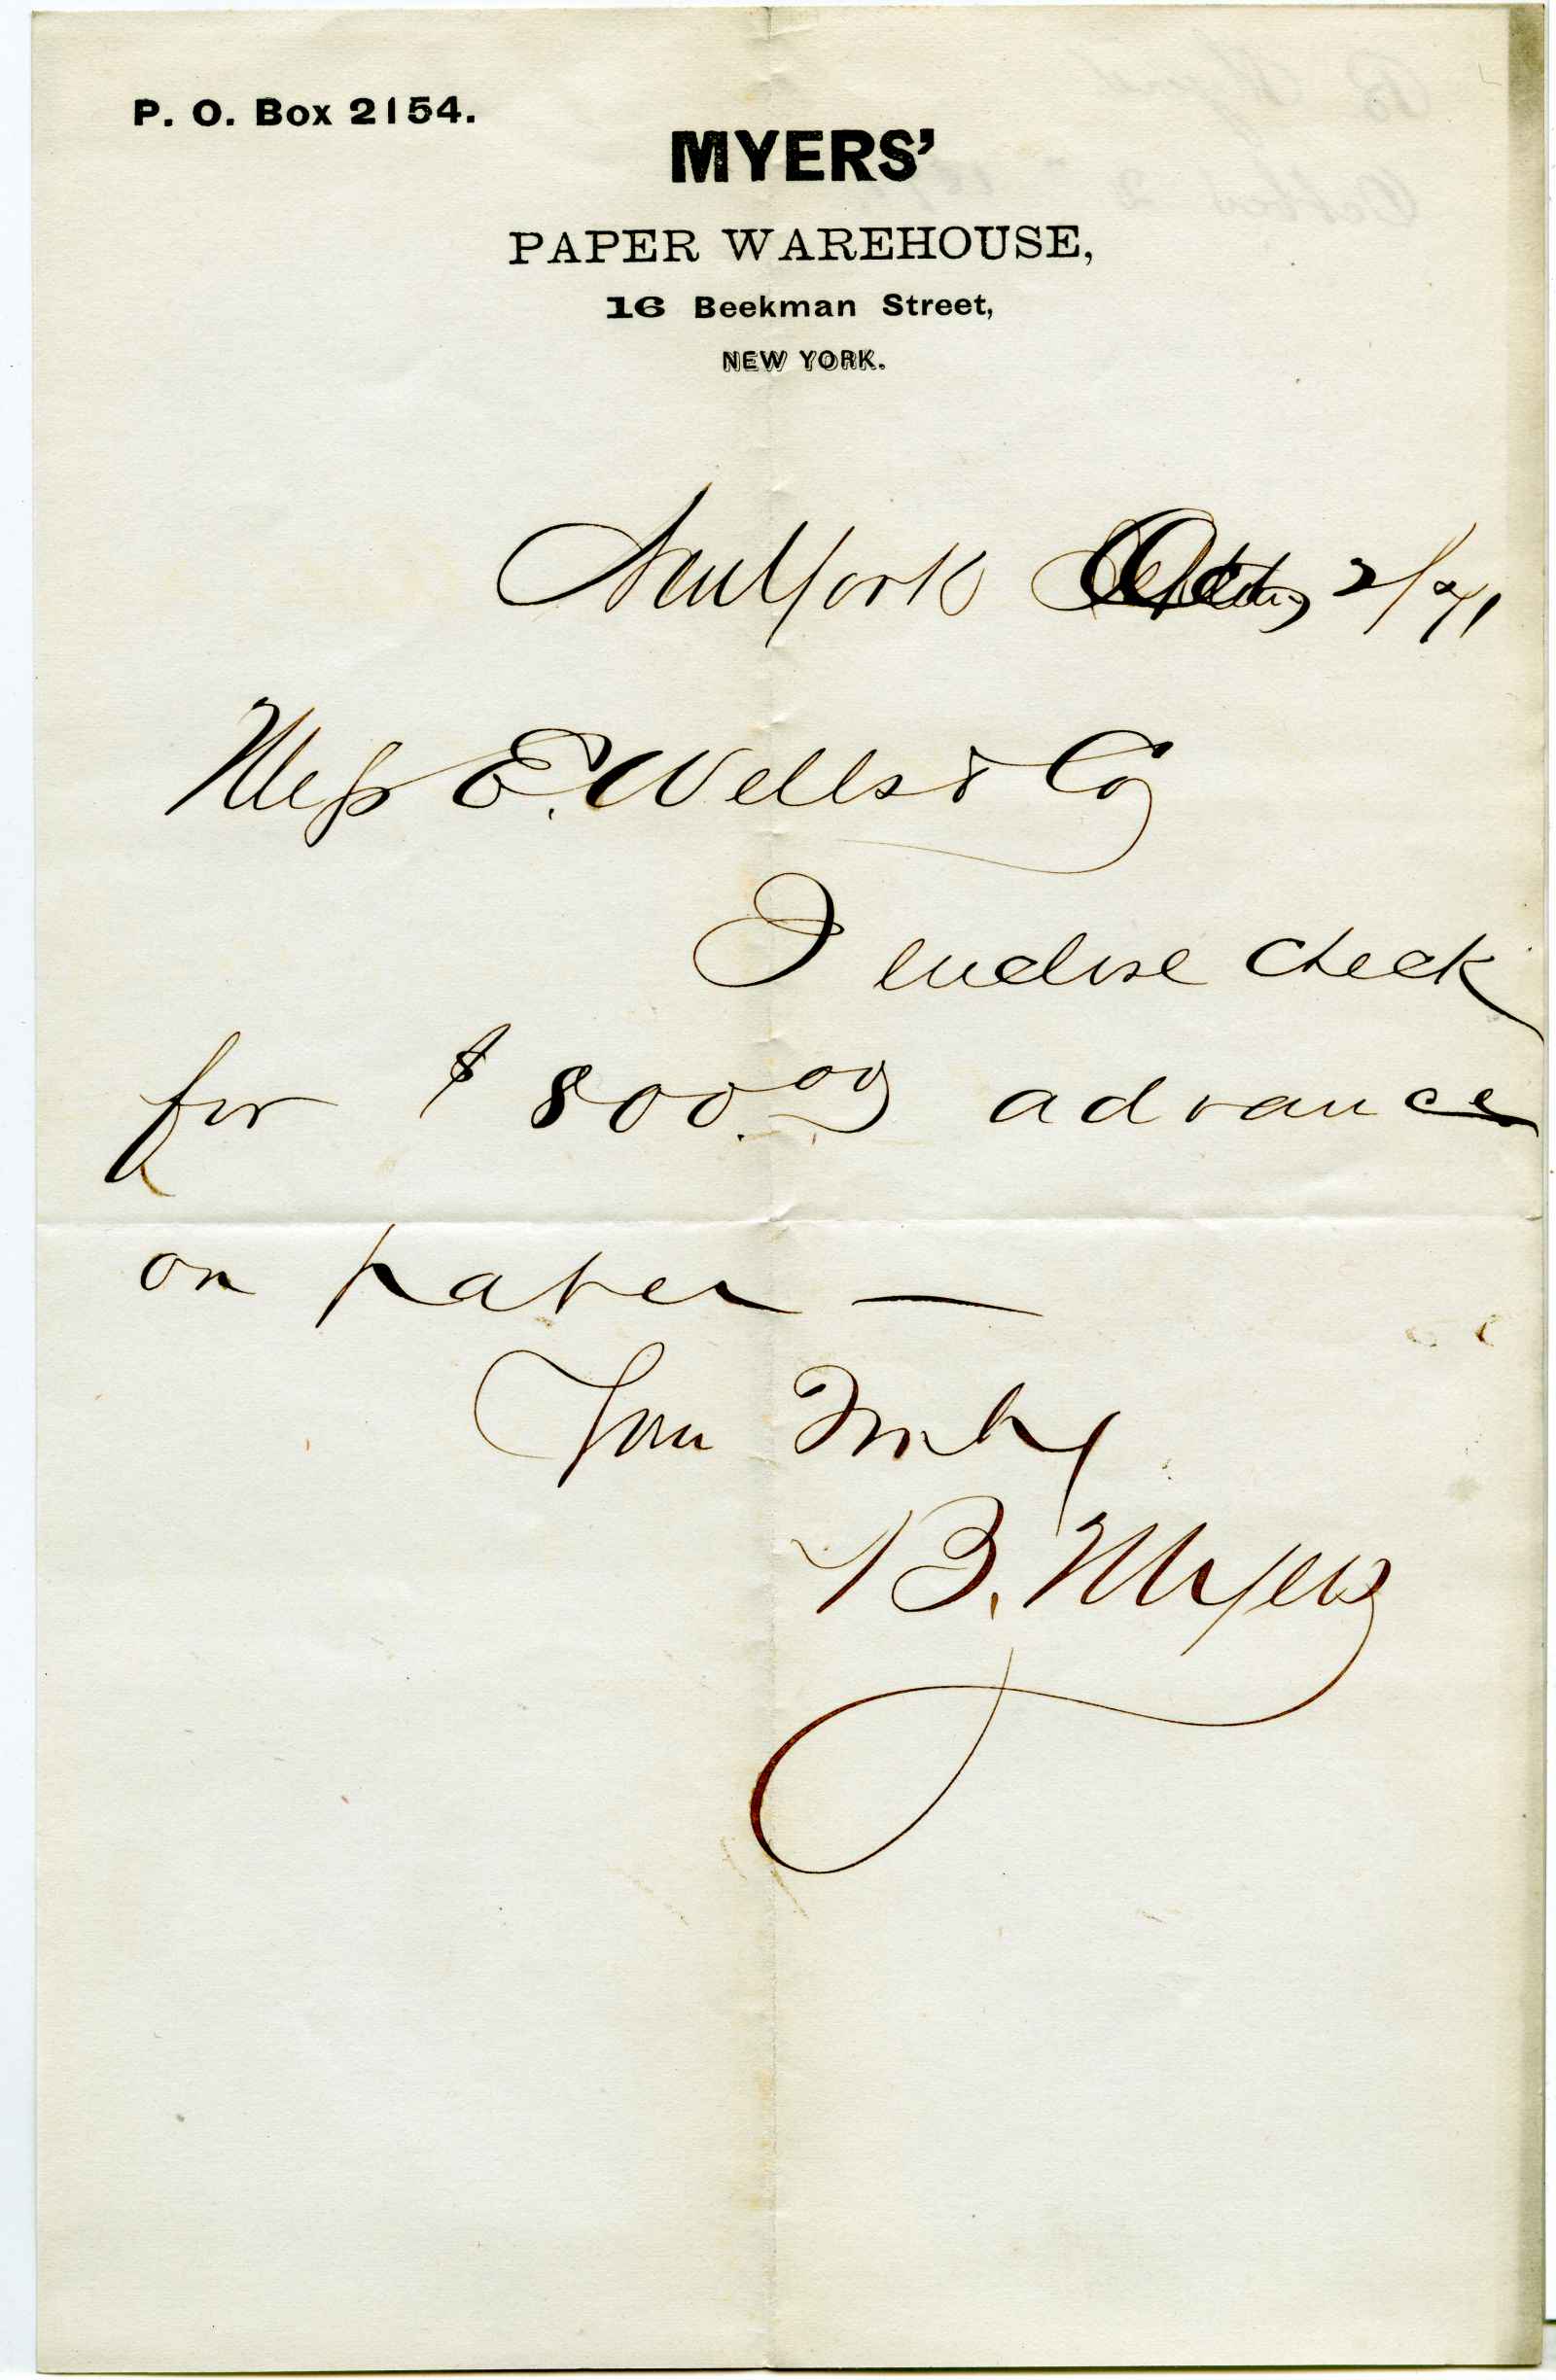 P. O. Box 2154.
MYERS'
PAPER WAREHOUSE,
16 Beekman Street,
NEW YORK.
New York Oct 2/71
Mess E. Wells & Co
I enclose check
for $800.00 advance
on paper —
Your Truly
B. Myers